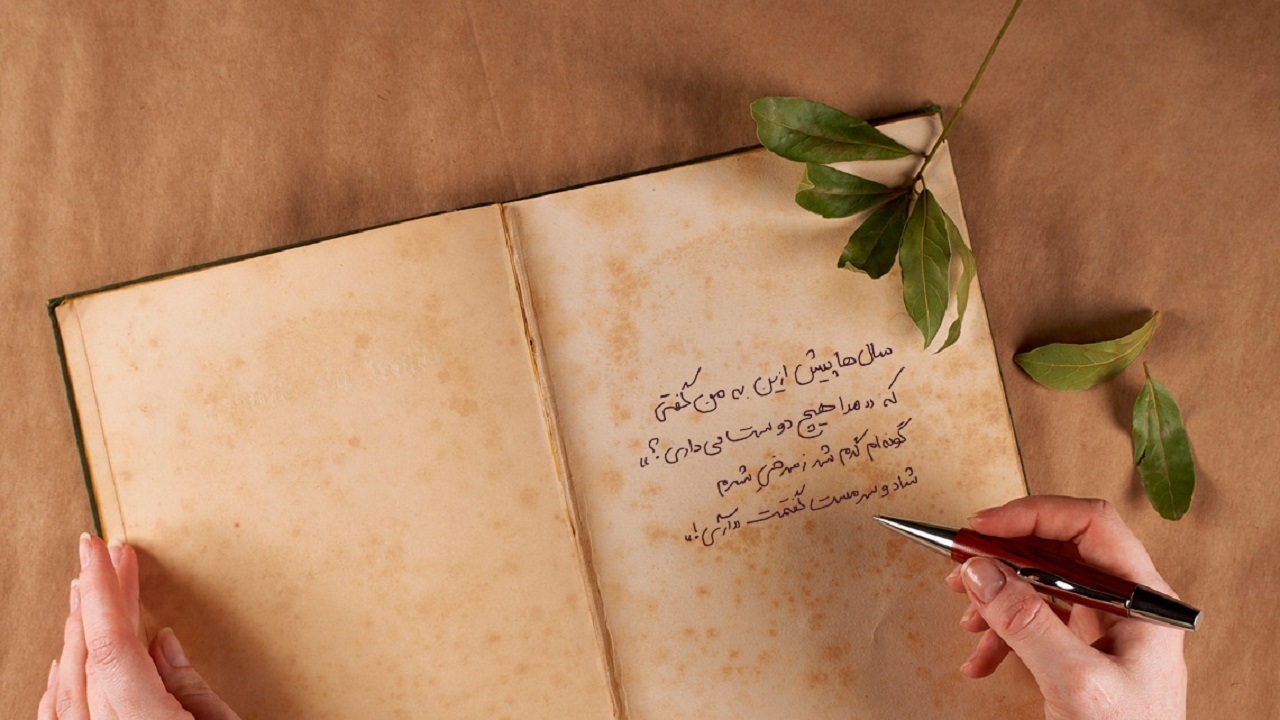 سال ها پیش ازین به من گفتی
که «مرا هیچ دوست می داری؟»
گونه ام گرم شد ز سرخیِ شرم
شاد و سرمست گفتمت «آری!»